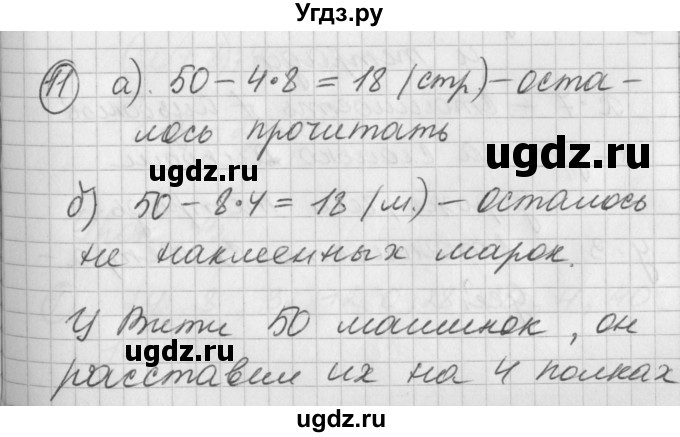 Угдз.ру
11 а). 50 – 4·8 = 18 (стр) – оста –
лось прочитать
ugdz.ru ugdz.ru
б) 50 – 8·4 = 18 (м.) – осталось
не наклеенных марок.
ugdz.ru
У Вити 50 машинок, он
ugdz.ru
расставил их на 4 полках
ugdz.ru